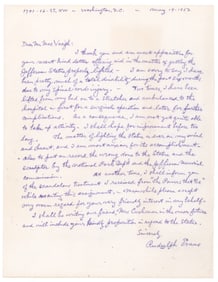 1701-16-St, NW - Washington, D.C. - May 19-1952
Dear Mr. Mac Veagh:
I thank you and am most appreciative for
your recent kind letter offering aid in the matter of getting the
Jefferson Statue properly lighted. I am sorry to say I have
been pretty much of a total disability during the past 6 months
due to my spinal injury. Two times I have been
lifted from my bed on to a stretcher and ambulanced to the
hospital - first for a operation and later for further
complications. As a consequence, I am not yet quite able
to take up activity. I shall hope for improvement before too
long. The matter of lighting the Statue is dear in my mind
and heart, and I am most anxious for its accomplishment -
also to put on record the wrong done to the Statue and the
sculptor by the National Park Dept and the Jefferson Memorial
Commission. At another time, I shall inform you
of the scandalous treatment I received from the
while executing this assignment. Meanwhile please accept
my warm regard for your very friendly interest in my behalf.
I shall be writing our friend, Mr. Cushman in the near future
and will include your kindly proposition in regard to the Statue.
Sincerely
Rudolph Evans